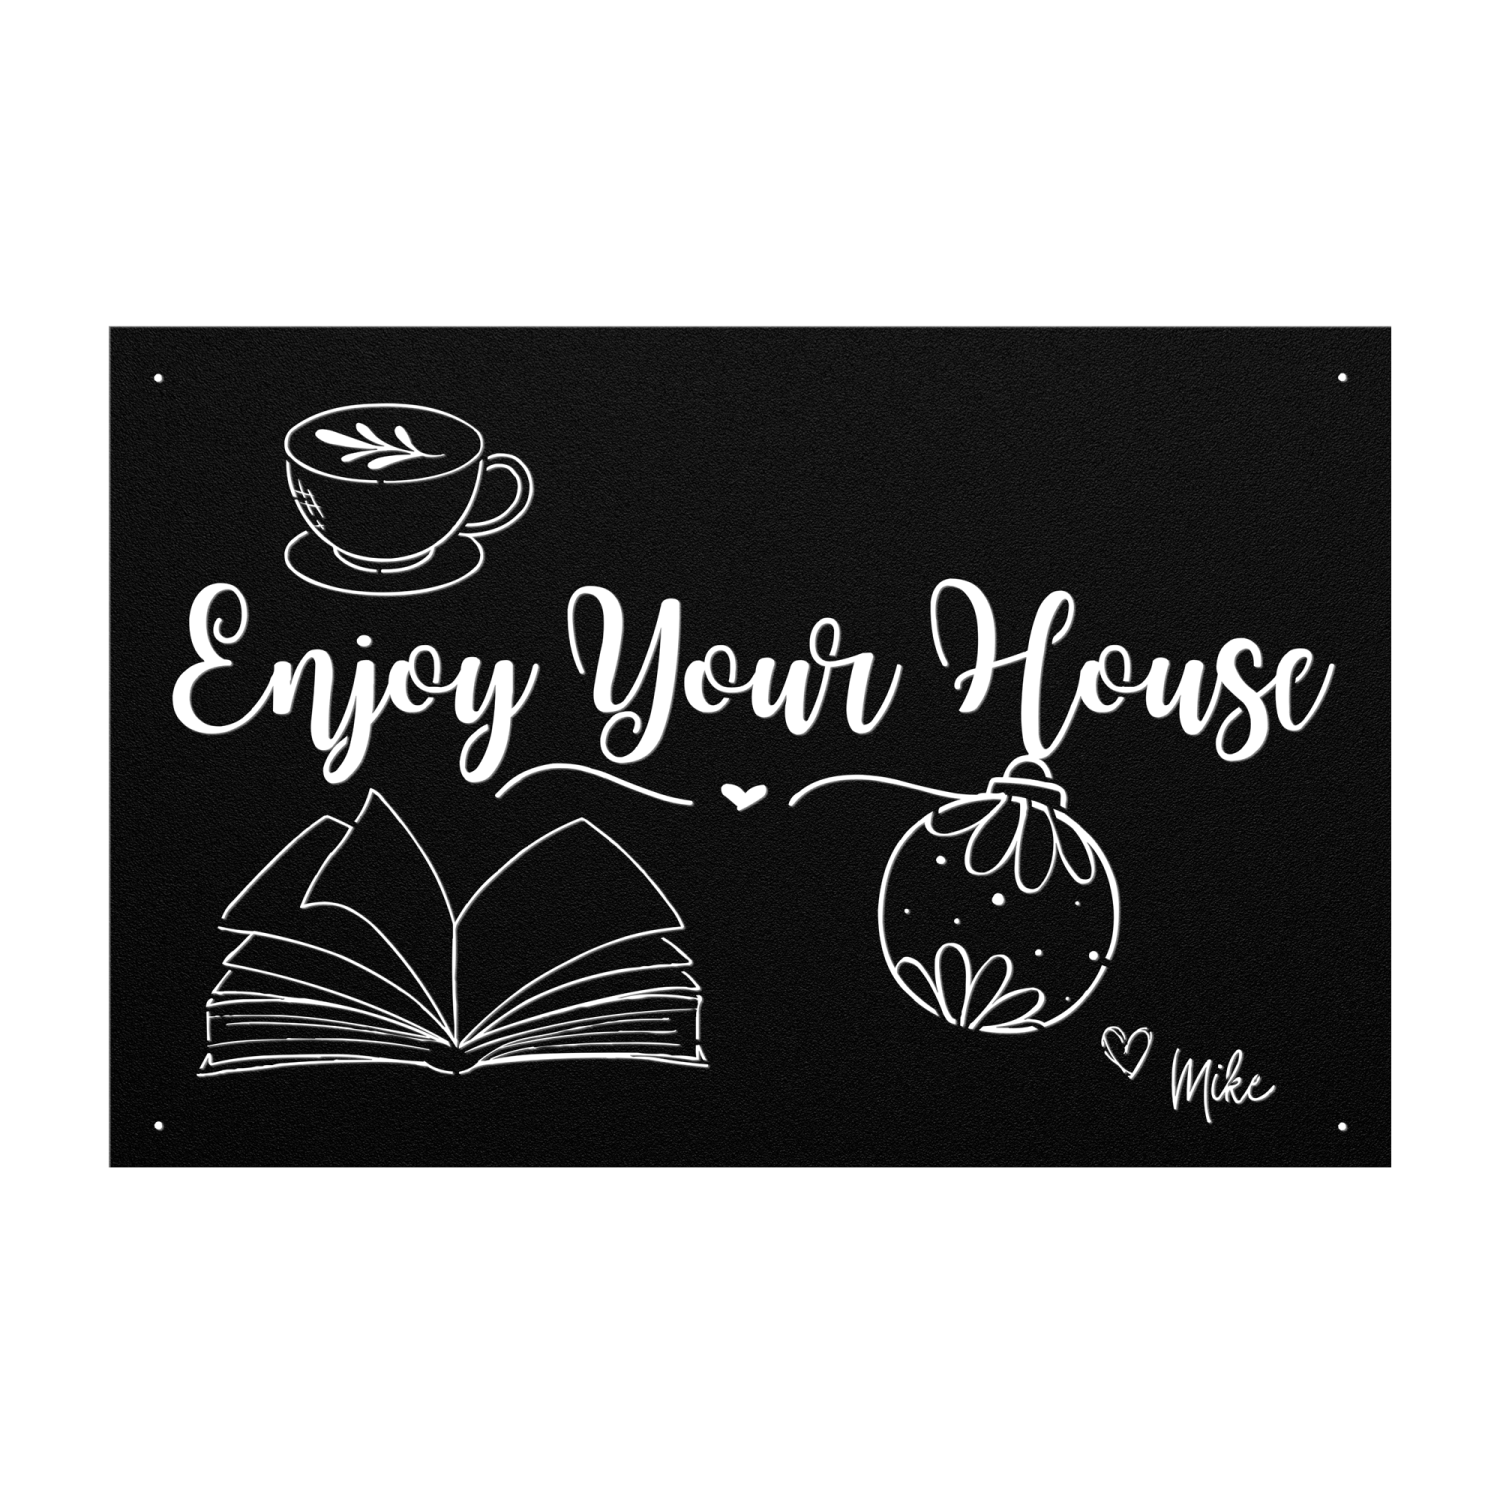 Enjoy Your House
Mike